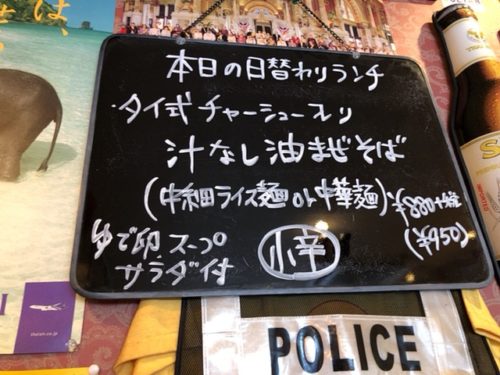 本日の日替わりランチ
・タイ式チャーシュー入り
汁なし油まぜそば
(中細ライス麺or中華麺) ¥880+税
(¥950)
ゆで卵スープ
サラダ付
小辛
thaian.co.jp
POLICE